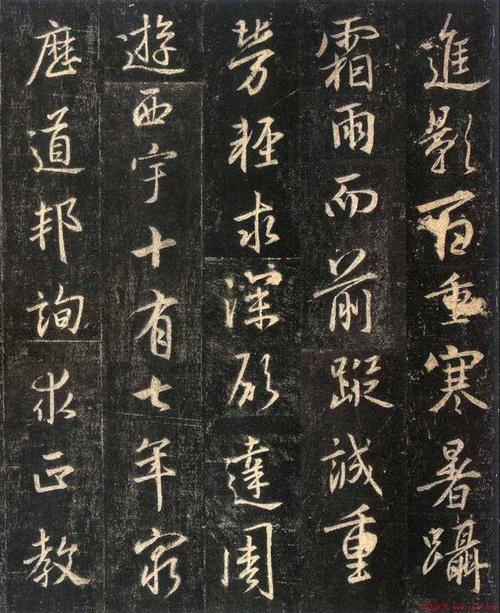 進影百重寒暑躡
霜雨而前蹤誠重
勞輕求深願達周
遊西宇十有七年窮
歷道邦詢求正教